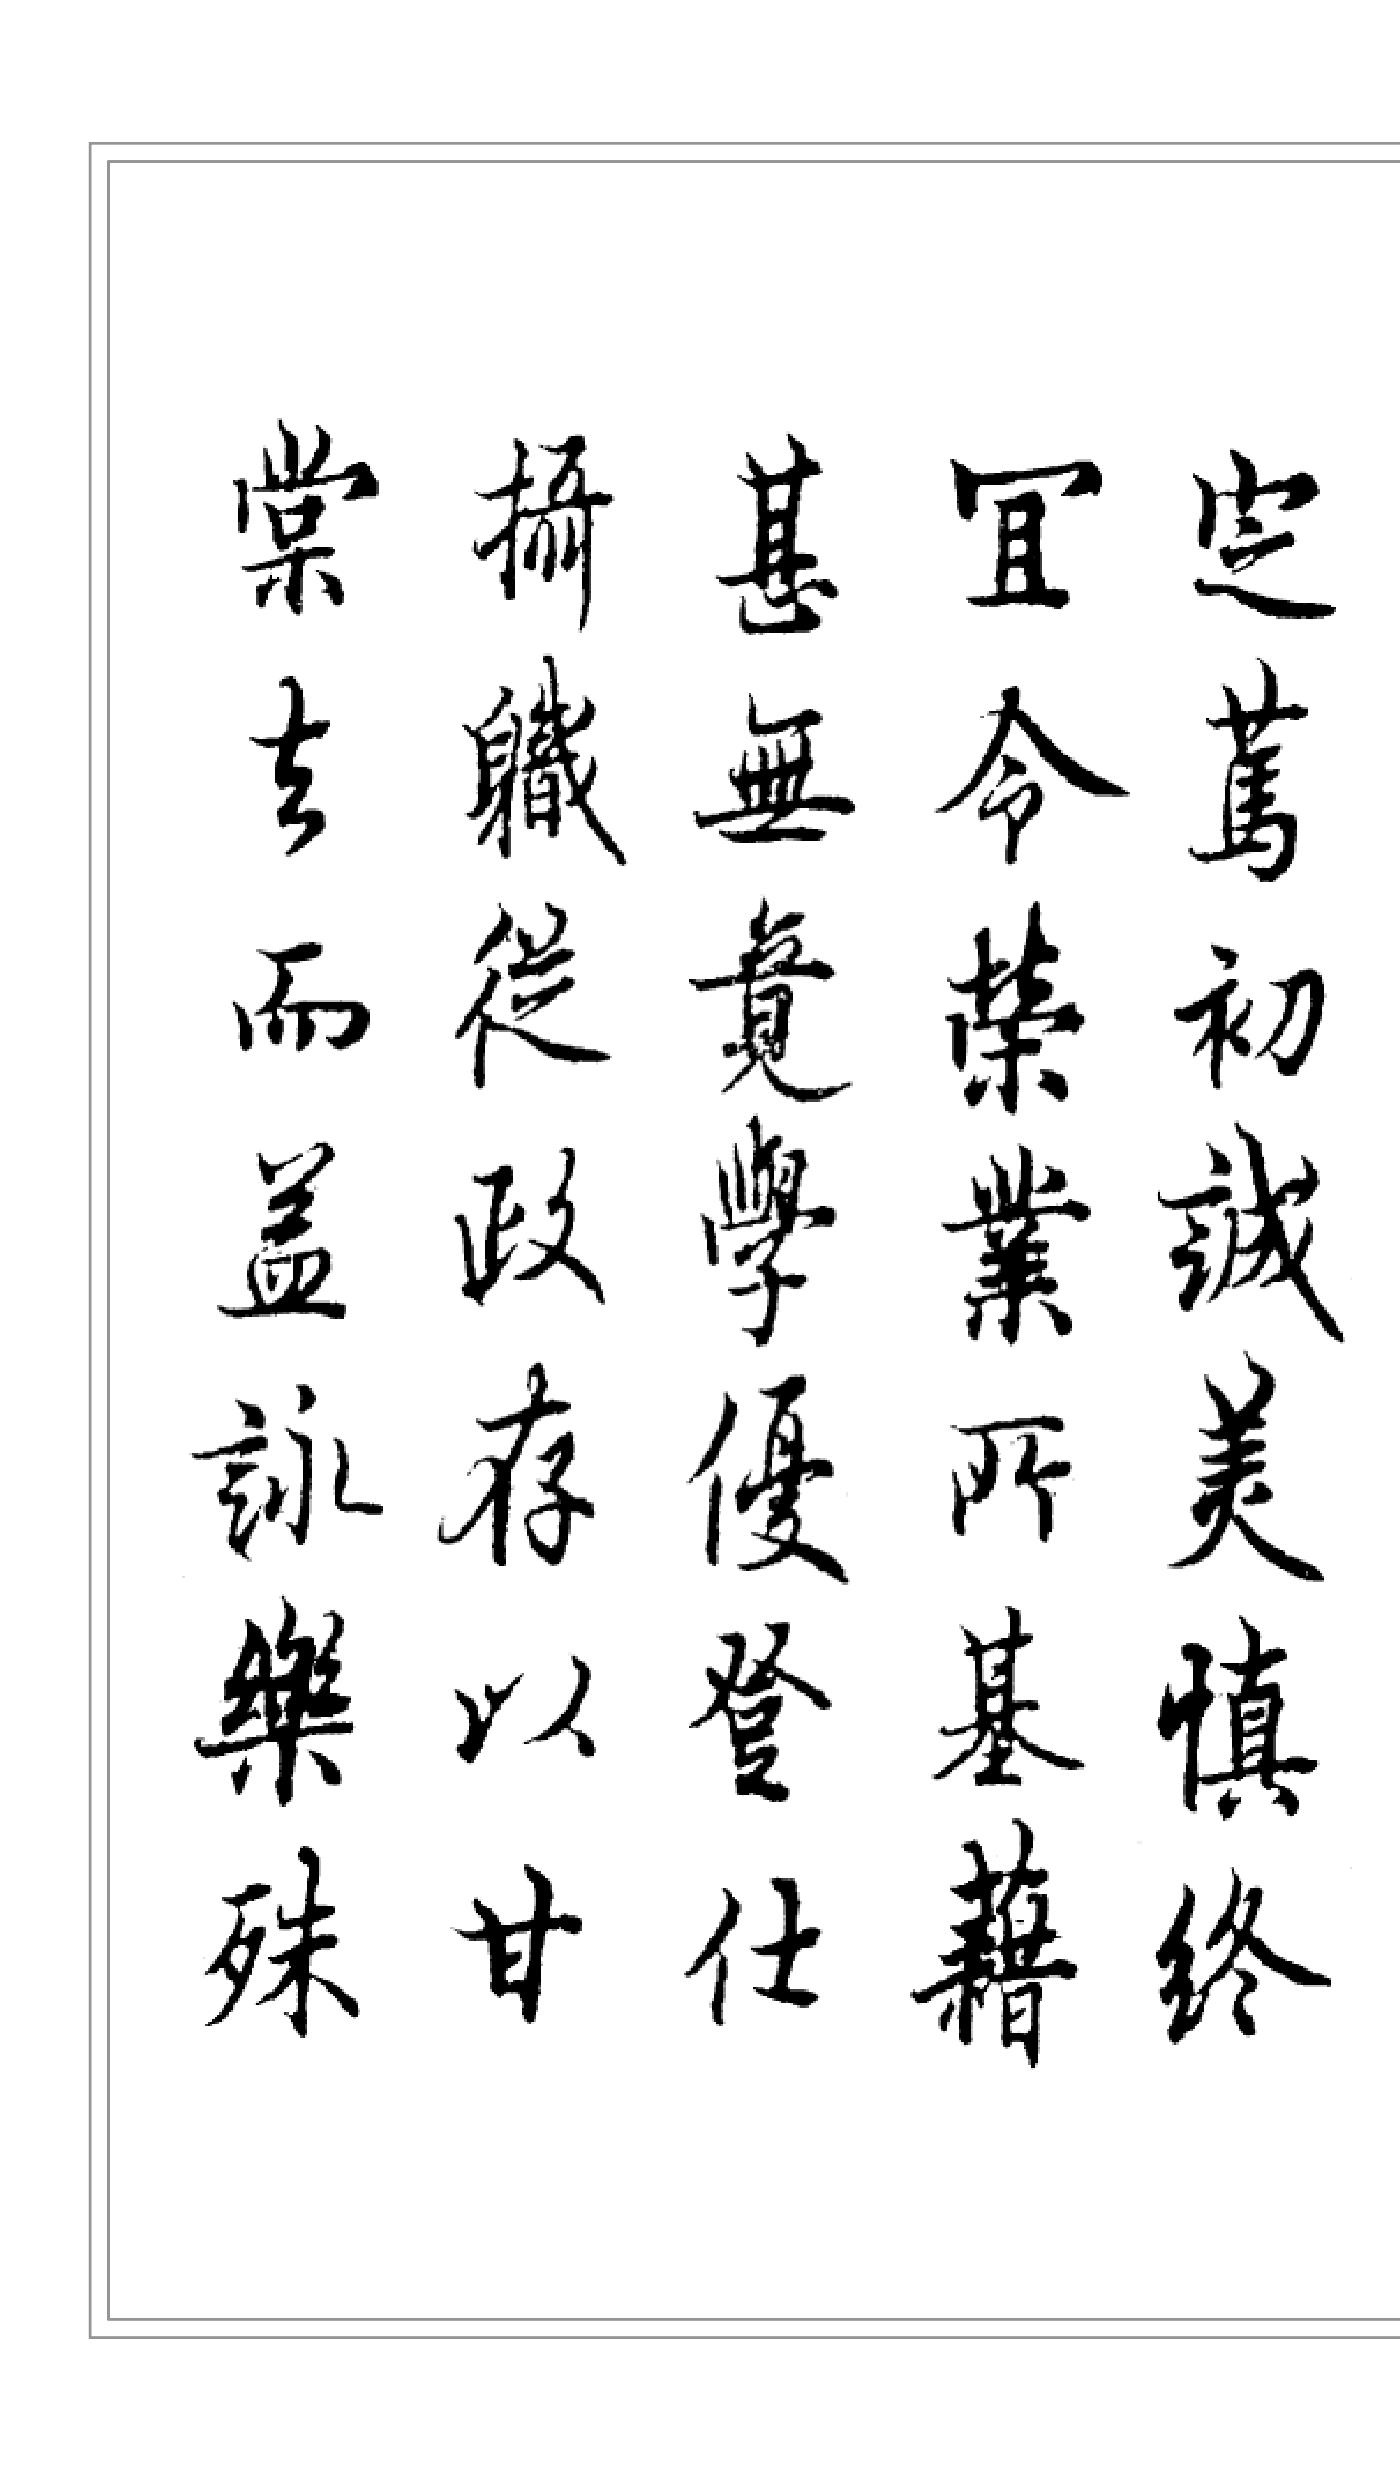 定篤初誠美慎終
宜令榮業所基藉
甚無竟學優登仕
攝職從政存以甘
棠去而益詠樂殊